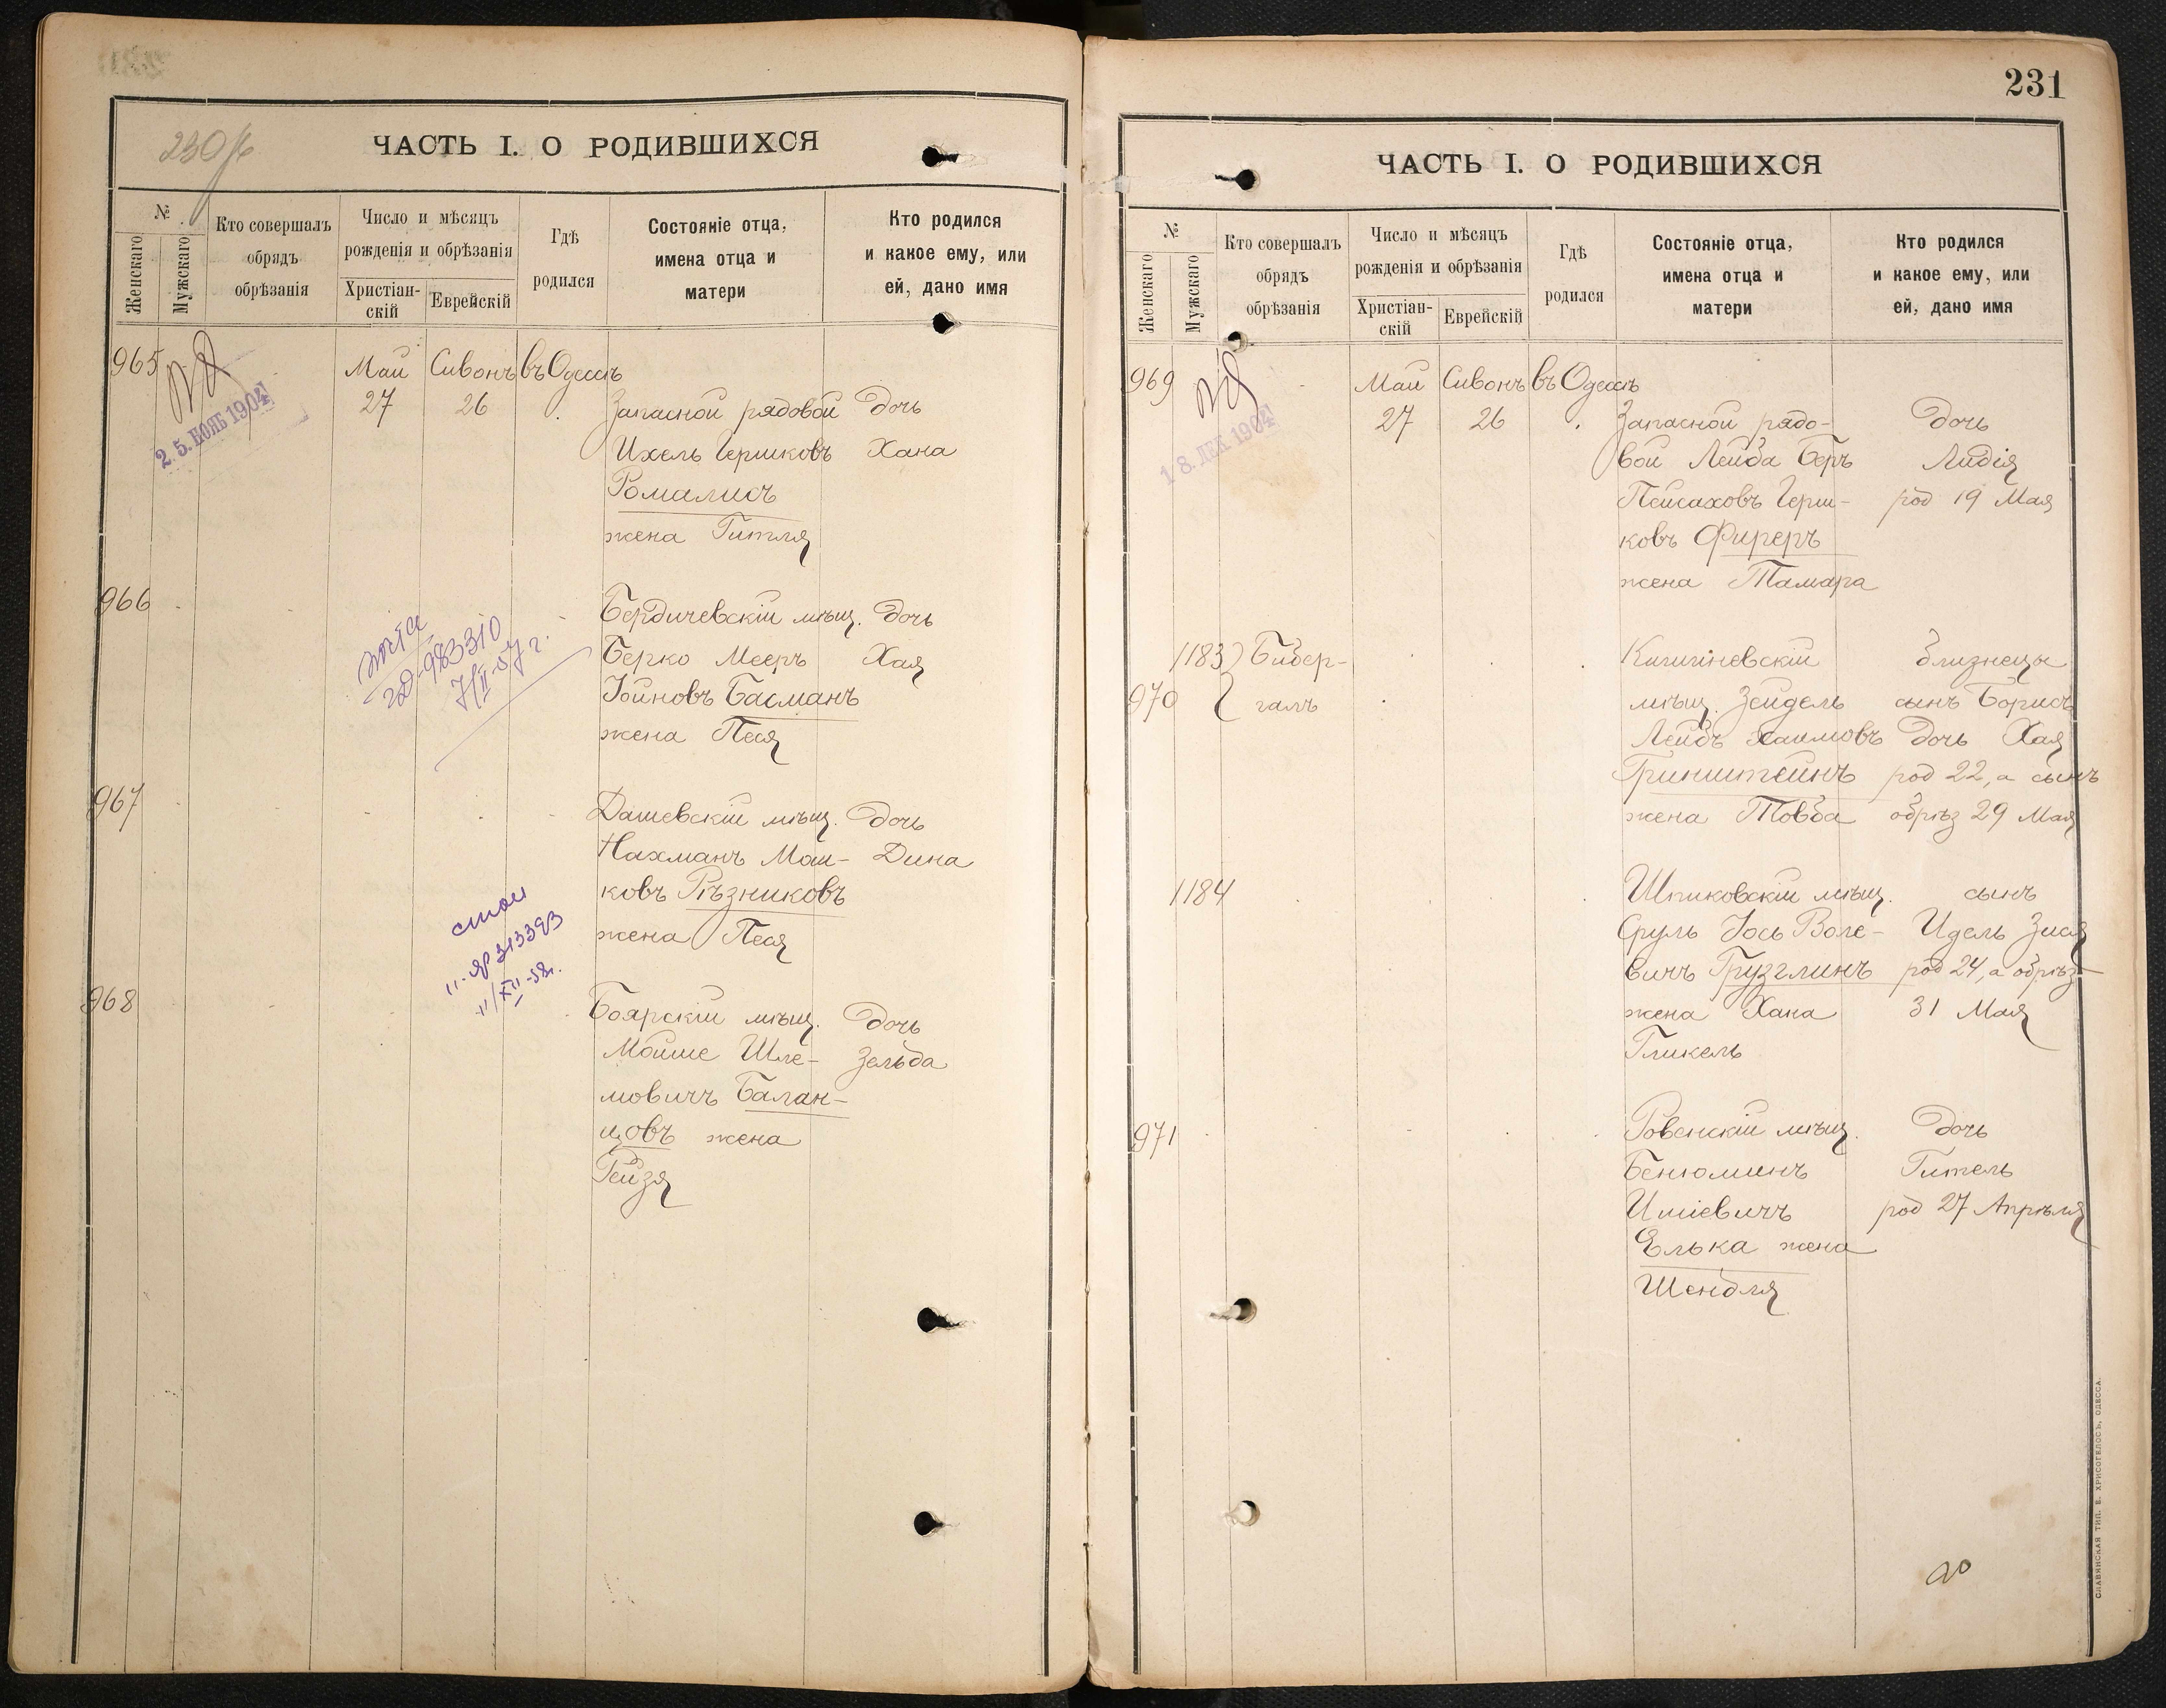 ЧАСТЬ I. О РОДИВШИХСЯ
№
Женскаго
Мужскаго
Кто совершалъ
обрядъ
обрѣзанія
Число и мѣсяцъ
рожденія и обрѣзанія
Христіан-
скій
Еврейскій
Гдѣ
родился
Состояніе отца,
имена отца и
матери
Кто родился
и какое ему, или
ей, дано имя
965
2.5.НОЯБ 1904
Май Сивонъ въ Одессѣ
27 26
Запасной рядовой дочь
Ихель Гершковъ Хана
Ромалисъ
жена Гитля
966
983310
7/II-57 г.
Бердичевскій мѣщ. дочь
Берко Мееръ Хая
Іойновъ Басманъ
жена Песя
967
Дашевскій мѣщ. дочь
Нахманъ Мош- Дина
ковъ Рѣзниковъ
жена Песя
313393
11/XII-58г.
968
Боярскій мѣщ. дочь
Мойше Шле- Зельда
мовичъ Балан-
цовъ жена
Рейзя
231
ЧАСТЬ I. О РОДИВШИХСЯ
№
Женскаго
Мужскаго
Кто совершалъ
обрядъ
обрѣзанія
Число и мѣсяцъ
рожденія и обрѣзанія
Христіан-
скій
Еврейскій
Гдѣ
родился
Состояніе отца,
имена отца и
матери
Кто родился
и какое ему, или
ей, дано имя
969
18.ДЕК 1904
Май Сивонъ въ Одессѣ
27 26
Запасной рядо- дочь
вой Лейба Беръ Лидія
Пейсаховъ Герш- род 19 Мая
ковъ Фиреръ
жена Тамара
1183 Бибер-
970 галъ
Кишиневскій близнецы
мѣщ. Зейдель сынъ Борисъ
Лейбъ Хаимовъ дочь Хая
Гринштейнъ род 22, а сынъ
жена Товба обрѣз 29 Мая
1184
Шпиковскій мѣщ. сынъ
Сруль Іось Воле- Идель Зися
вичъ Грузглинъ род 24, а обрѣз
жена Хана 31 Мая
Гликель
971
Ровенскій мѣщ. дочь
Бенюминъ Гитель
Ишіевичъ род 27 Апрѣля
Елька жена
Шендля
СЛАВЯНСКАЯ ТИП. Е. ХРИСОГЕЛОСЪ, ОДЕССА.